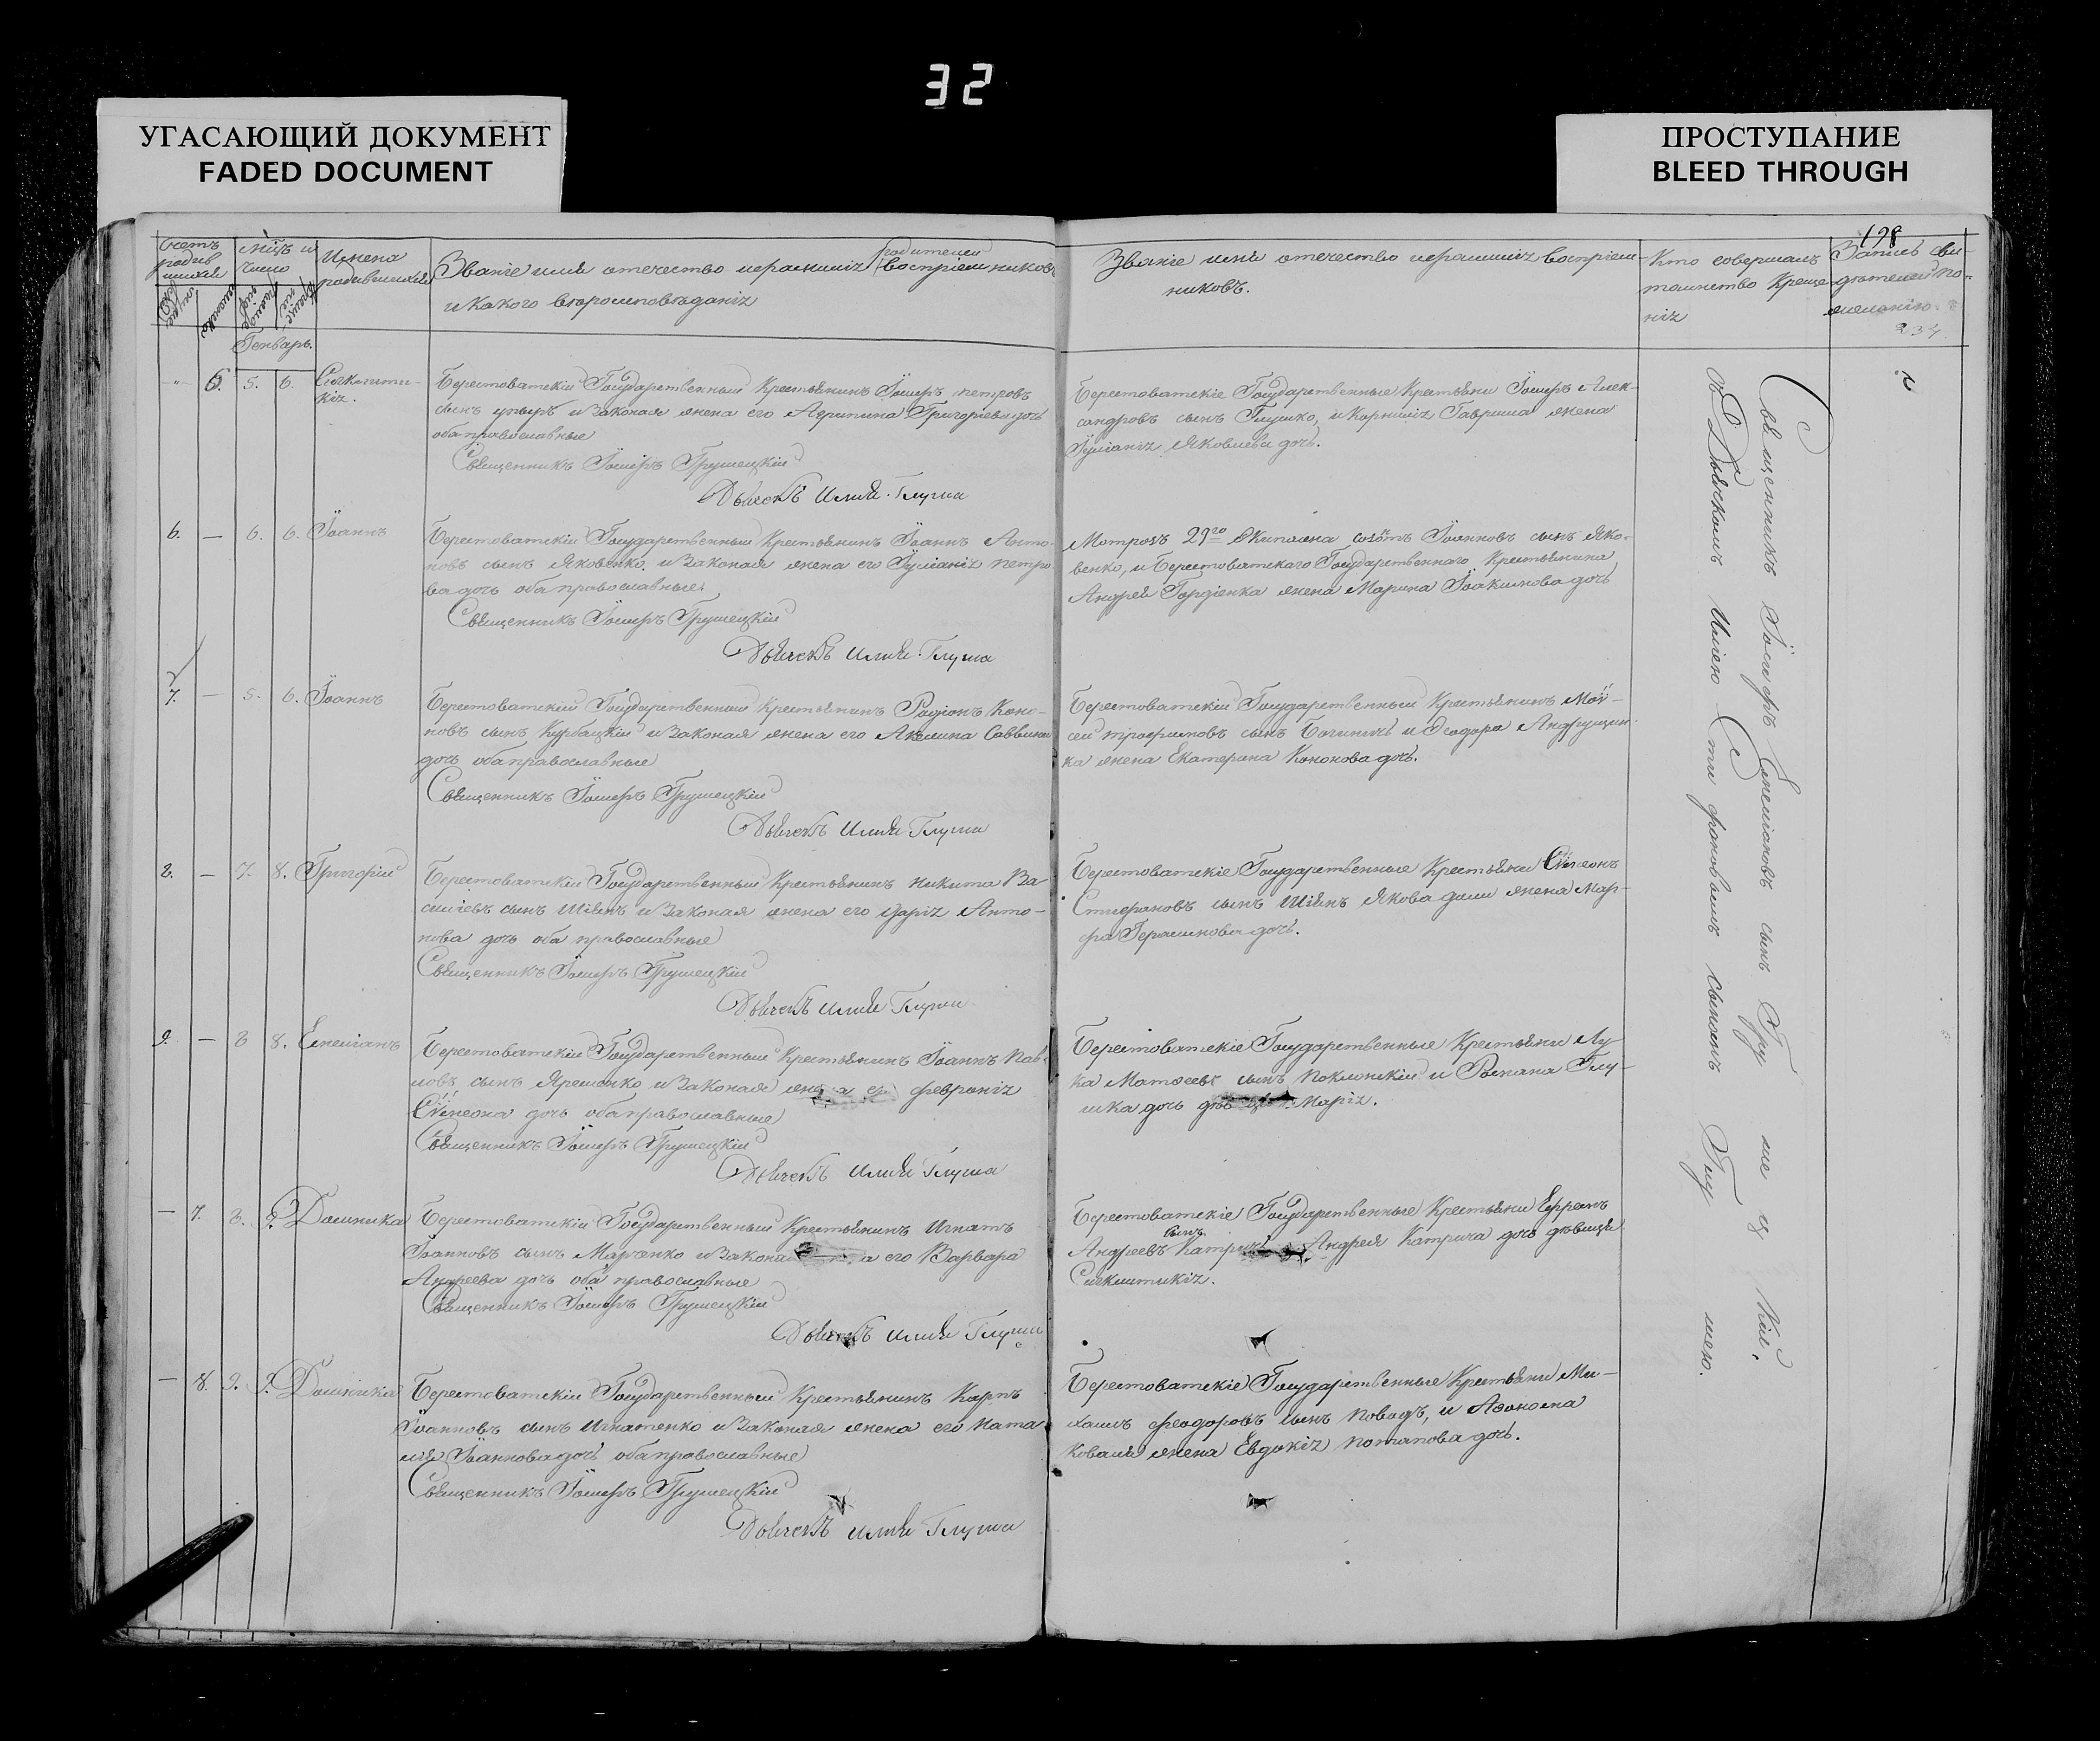 32
УГАСАЮЩИЙ ДОКУМЕНТ
FADED DOCUMENT
ПРОСТУПАНИЕ
BLEED THROUGH
198
Имена
родившихся
Званіе имя отечество ифамилія родителей воспріемниковъ
и какого вѣроисповѣданія
Званіе имя отечество ифамилія воспріем-
никовъ.
Кто совершалъ
таинство Креще-
нія
Запись сви-
дѣтелей по
желанію
234
Генварь.
" 6. 5. 6.
Берестоватскій Государственный Крестьянинъ Іосифъ петровъ
сынъ упырь и законая жена его Агрипина Григоріева дочь
оба православные
Священникъ Іосифъ Грушецкій
Дьячекъ Илія Глуша
Берестоватскіе Государственные Крестьяни Іосифъ Алек-
сандровъ сынъ Глушко, и Корнилія Гавриша жена
Іуліанія Яковлева дочь.
6. — 6. 6. Іоаннъ
Берестоватскій Государственный Крестьянинъ Іоаннъ Анто-
новъ сынъ Яковенко, и Законая жена его Іуліанія петро
ва дочь оба православные
Священникъ Іосифъ Грушецкій
Дьячекъ Илія Глуша
Матрозъ 29го Экипажа Іоанновъ сынъ Яко-
венко, и Берестоватскаго Государственнаго Крестьянина
Андрея Гордіенка жена Марина Іоакимова дочь
7. — 5. 6. Іоаннъ
Берестоватскій Государственный Крестьянинъ Радіонъ Коно-
новъ сынъ Курбацкій и Законая жена его Акелина Саввина
дочь оба православные
Священникъ Іосифъ Грушецкій
Дьячекъ Илія Глуша
Берестоватскіи Государственный Крестьянинъ Мой-
сей трофимовъ сынъ и Ѳеодора Андрущен-
ка жена Екатерина Кононова дочь.
8. — 7. 8. Григорій
Берестоватскій Государственный Крестьянинъ Никита Ва-
силіевъ сынъ Шіянъ и Законая жена его Дарія Анто-
нова дочь оба православные
Священникъ Іосифъ Грушецкій
Дьячекъ Илія Глуша
Берестоватскіе Государственные Крестьяни Сѵмеонъ
Стефановъ сынъ Шіянъ Якова жена Мар-
фа Герасимова дочь.
9. — 8 8. Емеліанъ
Берестоватскій Государственный Крестьянинъ Іоаннъ Пав-
ловъ сынъ Яременко и Законая жена его феѵронія
Сѵмеона дочь оба православные
Священникъ Іосифъ Грушецкій
Дьячекъ Илія Глуша
Берестоватскіе Государственные Крестьяни Лу-
ка Матѳеевъ сынъ и Романа Глу-
шка дочь Марія.
— 7. 8. 9. Домника
Берестоватскій Государственный Крестьянинъ Игнатъ
Іоанновъ сынъ Марченко и Закона а его Варвара
Андреева дочь оба православные
Священникъ Іосифъ Грушецкій
Дьячекъ Илія Глуша
Берестоватскіе Государственные Крестьяни Ефремъ
Андреевъ сынъ Катричъ Андрея Катрича дочь дѣвица
Сѵнклитикія.
— 8. 9. 9. Домника
Берестоватскій Государственный Крестьянинъ Карпъ
Іоанновъ сынъ Игнатенко и Законая жена его Ната
лія Іоаннова дочь оба православные
Священникъ Іосифъ Грушецкій
Дьячекъ Илія Глуша
Берестоватскіе Государственные Крестьяни Ми-
хаилъ феодоровъ сынъ и Аѳонона
Коваля жена Евдокія потапова дочь.
Священникъ Іосифъ Емеліановъ сынъ Гру ше ц кій.
съ Дьячкомъ Иліею Стефановымъ сыномъ Глу шею.